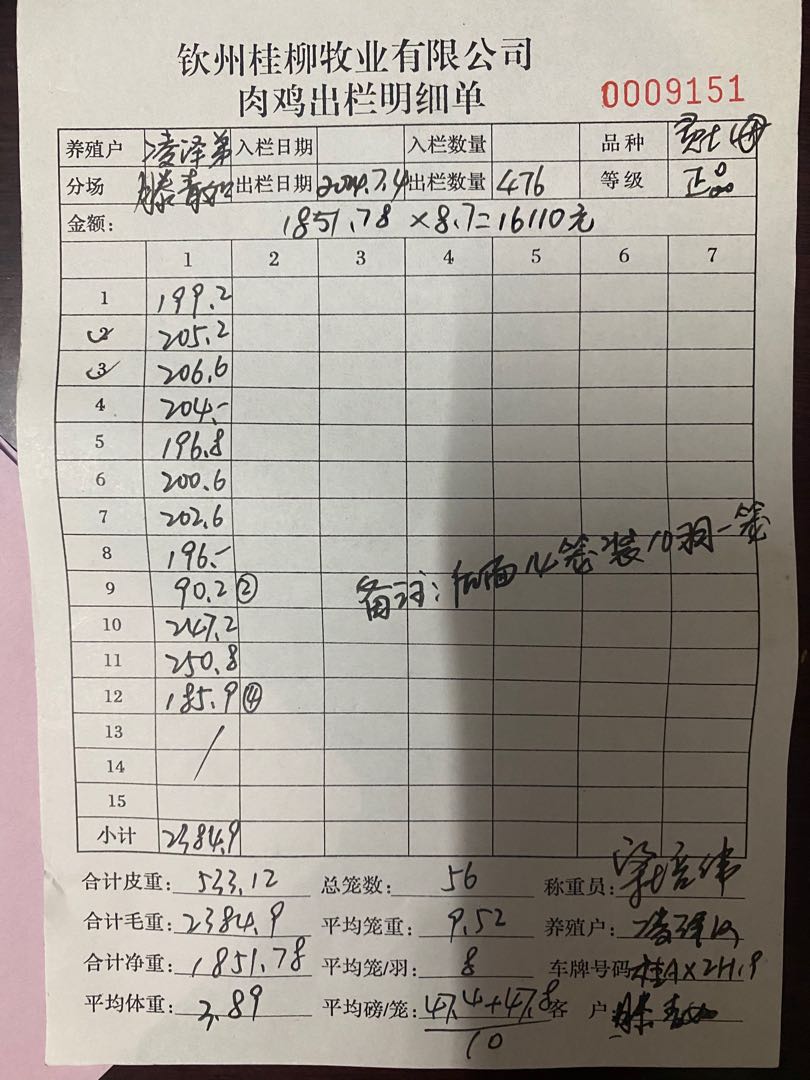 钦州桂柳牧业有限公司
肉鸡出栏明细单 0009151
养殖户 凌泽弟 入栏日期 入栏数量 品种
分场 出栏日期 2024.7.4 出栏数量 476 等级 正品
金额: 1851.78 ×8.7=16110元
1 2 3 4 5 6 7
1 199.2
2 205.2
3 206.6
4 204.-
5 196.8
6 200.6
7 202.6
8 196.-
9 90.2 ②
10 247.2
11 250.8
12 185.9 ④
备注: 后面14笼装10羽一笼
13
14
15
小计 2384.9
合计皮重: 533.12 总笼数: 56 称重员:
合计毛重: 2384.9 平均笼重: 9.52 养殖户:
合计净重: 1851.78 平均笼/羽: 8 车牌号码
平均体重: 3.89 平均磅/笼: 47.4+47.8 客 户
10